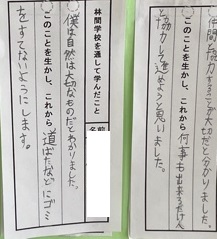 林間学校を通して学んだこと
僕は自然は大切なものだとわかりました。
このことを生かし、これから 道ばたなどにゴミ
をすてないようにします。
名前
仲間と協力することが大切だと分かりました。
このことを生かし、これから 何事も出来るだけ
と協力して進めようと思いました。